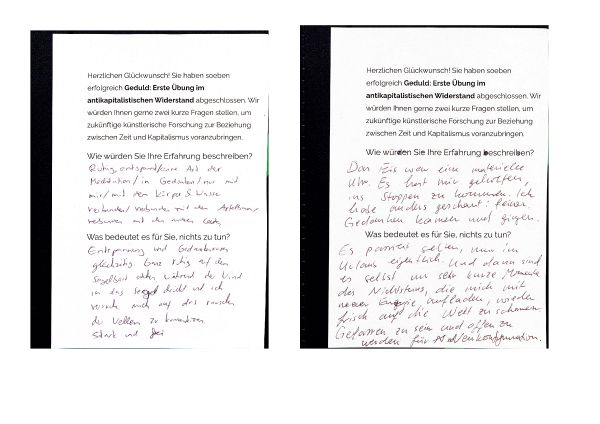 Herzlichen Glückwunsch! Sie haben soeben
erfolgreich Geduld: Erste Übung im
antikapitalistischen Widerstand abgeschlossen. Wir
würden Ihnen gerne zwei kurze Fragen stellen, um
zukünftige künstlerische Forschung zur Beziehung
zwischen Zeit und Kapitalismus voranzubringen.
Wie würden Sie Ihre Erfahrung beschreiben?
Ruhig, entspannt/eine Art der
Meditation/in Gedanken/nur mit
mir/mit dem Körper & Wasser
verbunden/verbunden mit den
verbunden mit den
Was bedeutet es für Sie, nichts zu tun?
Entspannung und
gleichzeitig. Ganz ruhig auf dem
Segelboot während der Wind
in das Segel drückt und ich
mich auf das rauschen
der Wellen zu
Stark und frei
Herzlichen Glückwunsch! Sie haben soeben
erfolgreich Geduld: Erste Übung im
antikapitalistischen Widerstand abgeschlossen. Wir
würden Ihnen gerne zwei kurze Fragen stellen, um
zukünftige künstlerische Forschung zur Beziehung
zwischen Zeit und Kapitalismus voranzubringen.
Wie würden Sie Ihre Erfahrung beschreiben?
Das Eis war eine materielle
Uhr. Es hat mir geholfen,
ins Stoppen zu kommen. Ich
habe anders geschaut:
Gedanken kamen und gingen.
Was bedeutet es für Sie, nichts zu tun?
Es passiert selten, nur im
Urlaub eigentlich. Und dann sind
es selbst nur sehr kurze Momente
des Nichtstuns, die mich mit
neuer Energie aufladen, wieder
frisch auf die Welt zu schauen.
Gelassen zu sein und offen zu
werden für